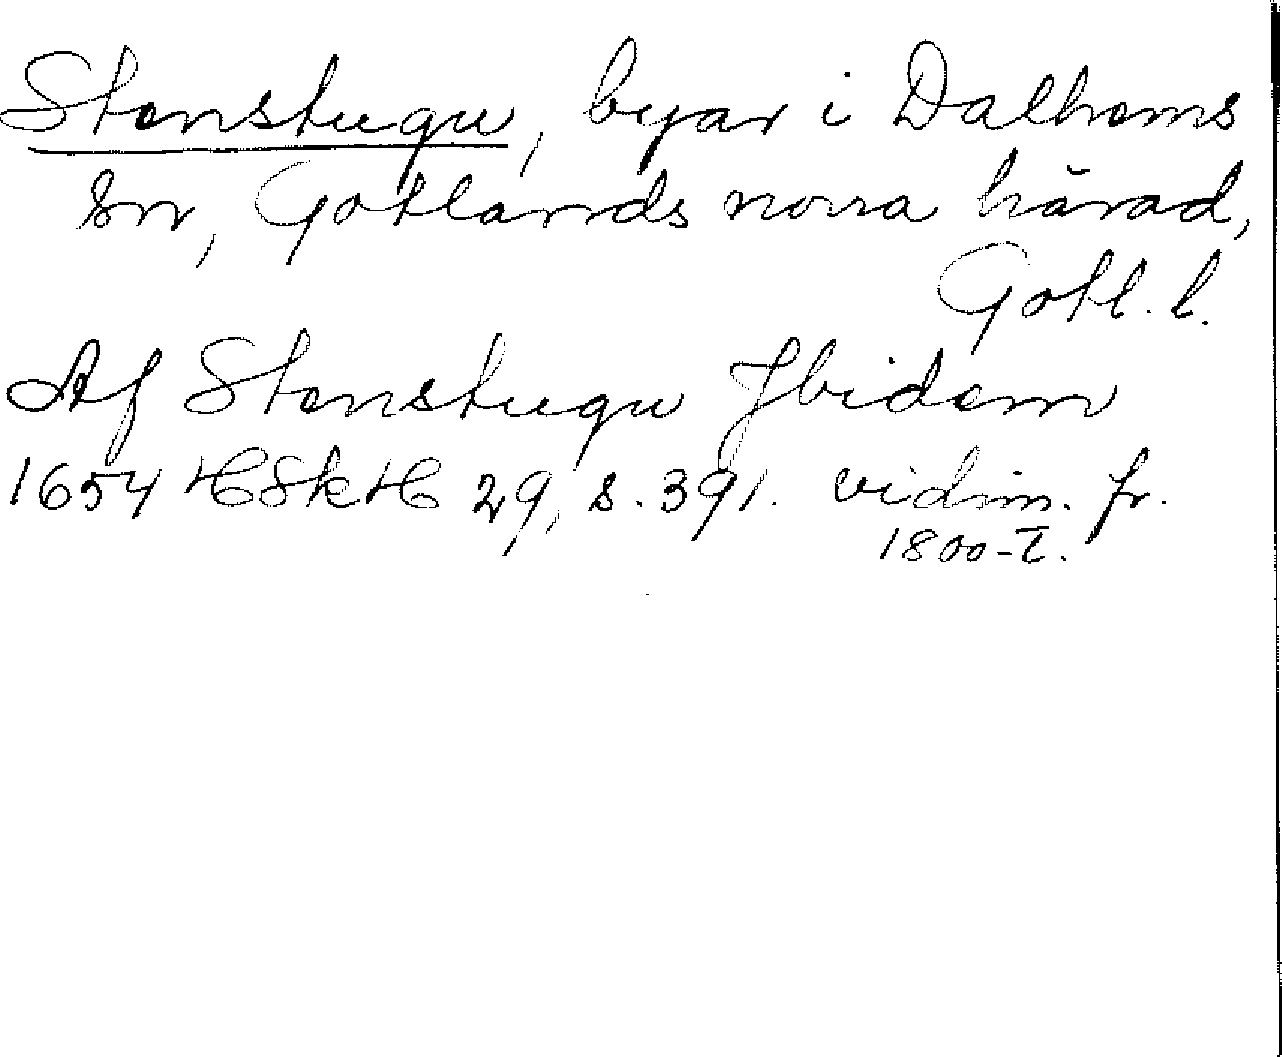 Stenstugu, byar i Dalhems
sn, Gotlands norra härad,
Gotl. l.
Af Stenstugu Jbidem
1654 HSkH 29, s. 391. vidim. fr.
1800-t.